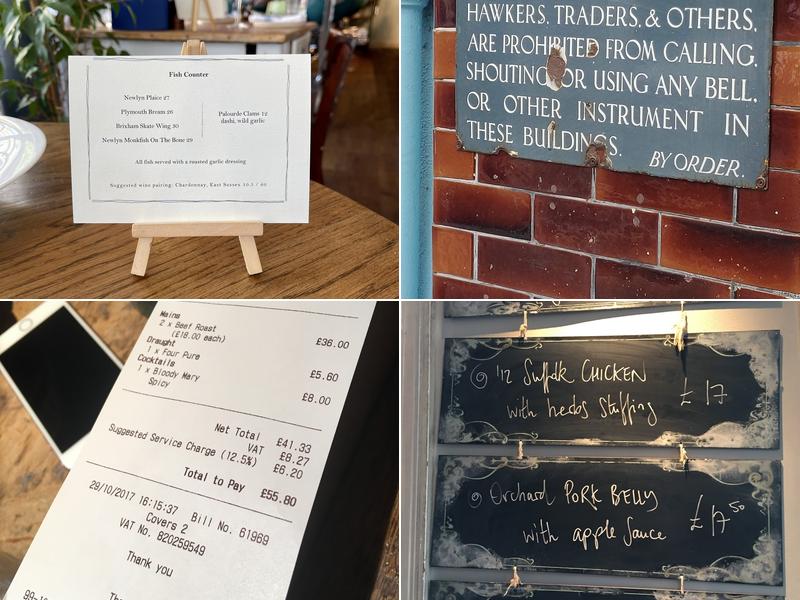 Fish Counter
Newlyn Plaice 27
Plymouth Bream 26
Brixham Skate Wing 30
Newlyn Monkfish On The Bone 29
Palourde Clams 12
dashi, wild garlic
All fish served with a roasted garlic dressing
Suggested wine pairing: Chardonnay, East Sussex 10.5 / 60
HAWKERS, TRADERS, & OTHERS,
ARE PROHIBITED FROM CALLING,
SHOUTING OR USING ANY BELL,
OR OTHER INSTRUMENT IN
THESE BUILDINGS.
BY ORDER.
Mains
2 x Beef Roast £36.00
(£18.00 each)
Draught
1 x Four Pure £5.60
Cocktails
1 x Bloody Mary £8.00
Spicy
Net Total £41.33
VAT £8.27
Suggested Service Charge (12.5%) £6.20
Total to Pay £55.80
29/10/2017 16:15:37 Bill No. 61969
Covers 2
VAT No. 820259549
Thank you
'12 Suffolk CHICKEN
with herbs Stuffing £17
Orchard PORK BELLY
with apple Sauce £17.50